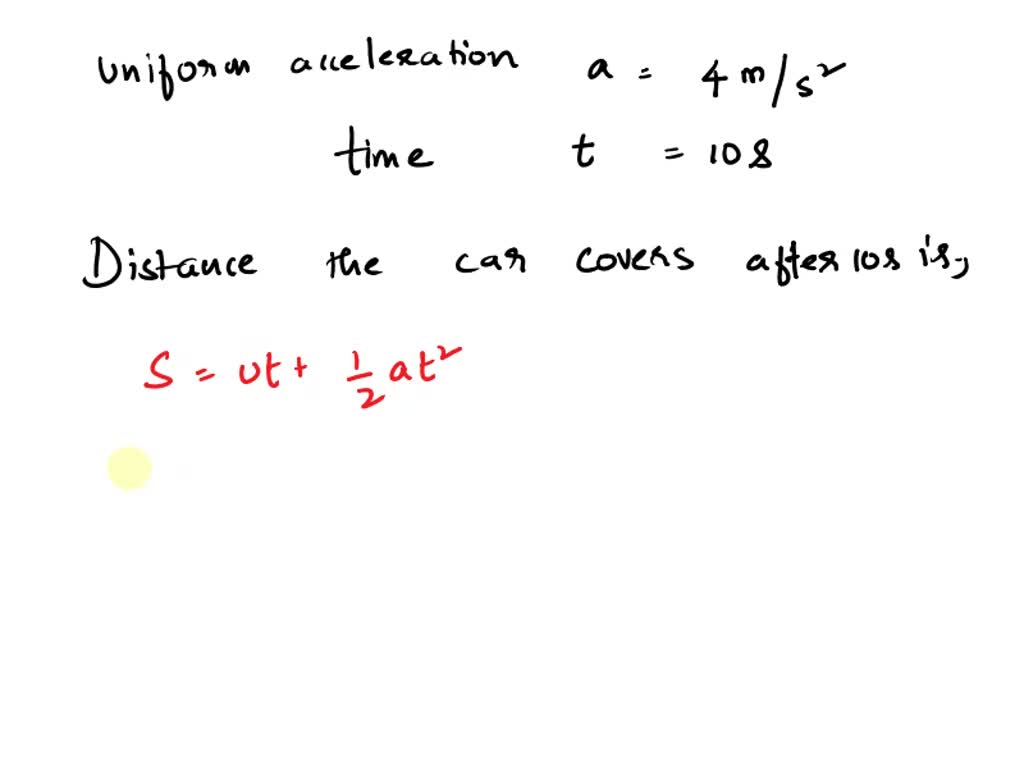 uniform acceleration a = 4 m/s²
time t = 10s
Distance the car covers after 10s is,
S = ut + 1/2 at²